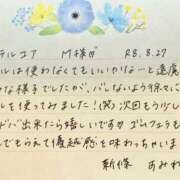 テルコア M様が R8.8.27
ルは使わなくてもいいかなーと遠慮
な様子でしたが、バレないよう徐々に
ルを使ってみました!(笑)次回もう少し
ドバ出来たら嬉しいですね ゴムフェラも
てもらえて優越感を味わっちゃいま
新條 あみれ